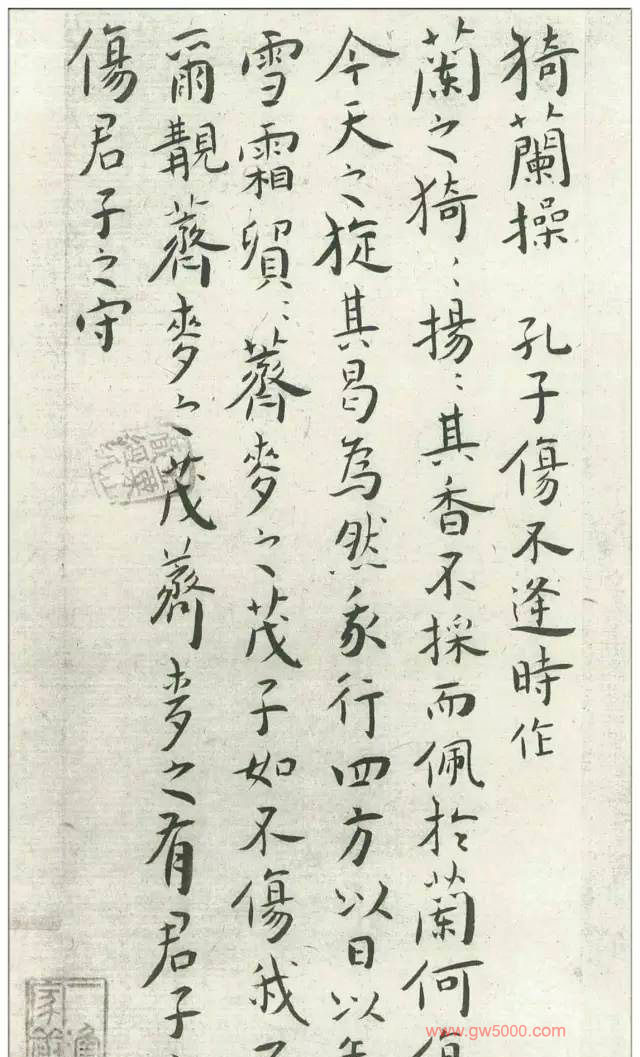 猗蘭操 孔子傷不逢時作
蘭之猗〻揚〻其香不採而佩於蘭何傷
今天之旋其曷為然我行四方以日以年
雪霜貿〻薺麥之茂子如不傷我
爾覯薺麥之茂薺麥之有君子
傷君子之守
www.gw5000.com